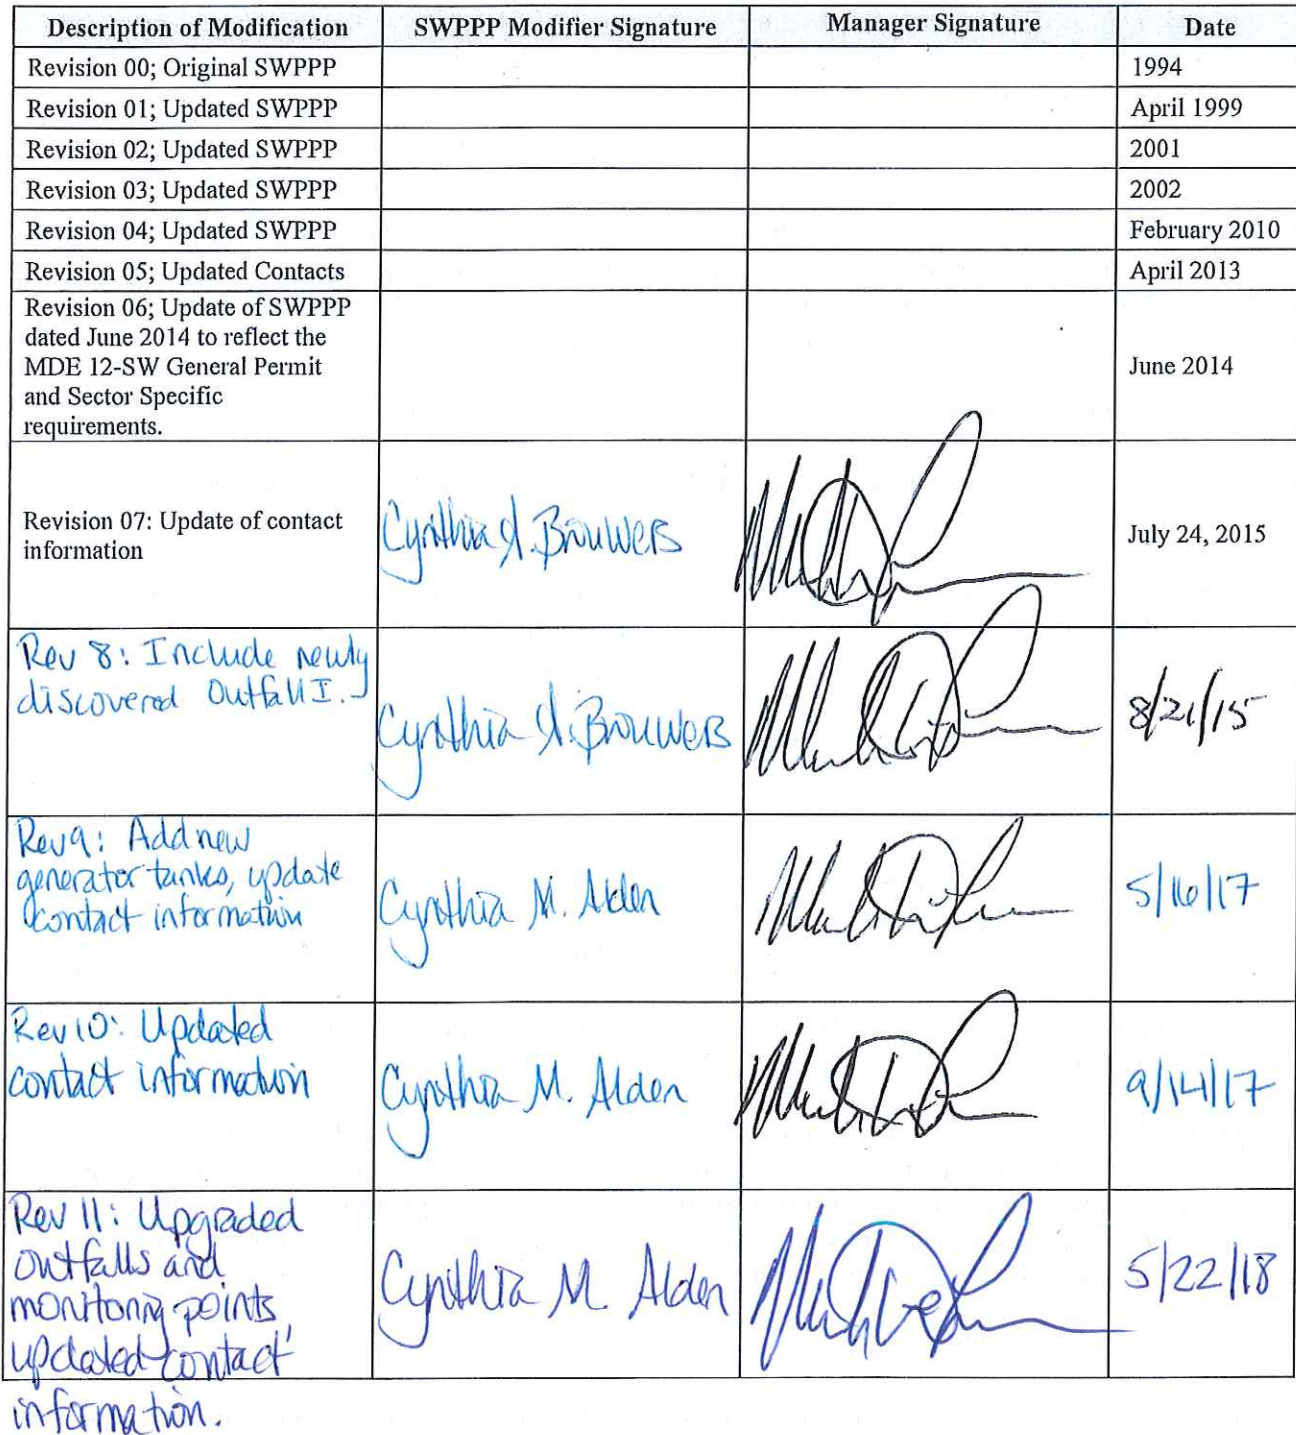 Description of Modification SWPPP Modifier Signature Manager Signature Date
Revision 00; Original SWPPP 1994
Revision 01; Updated SWPPP April 1999
Revision 02; Updated SWPPP 2001
Revision 03; Updated SWPPP 2002
Revision 04; Updated SWPPP February 2010
Revision 05; Updated Contacts April 2013
Revision 06; Update of SWPPP
dated June 2014 to reflect the
MDE 12-SW General Permit
and Sector Specific
requirements.
June 2014
Revision 07: Update of contact
information
Cynthia A. Brouwers
July 24, 2015
Rev 8: Include newly
discovered Outfall I.
Cynthia A. Brouwers
8/21/15
Rev 9: Add new
generator tanks, update
contact information
Cynthia M. Alden
5/16/17
Rev 10: Updated
contact information
Cynthia M. Alden
9/14/17
Rev 11: Upgraded
outfalls and
monitoring points,
updated contact
information.
Cynthia M. Alden
5/22/18